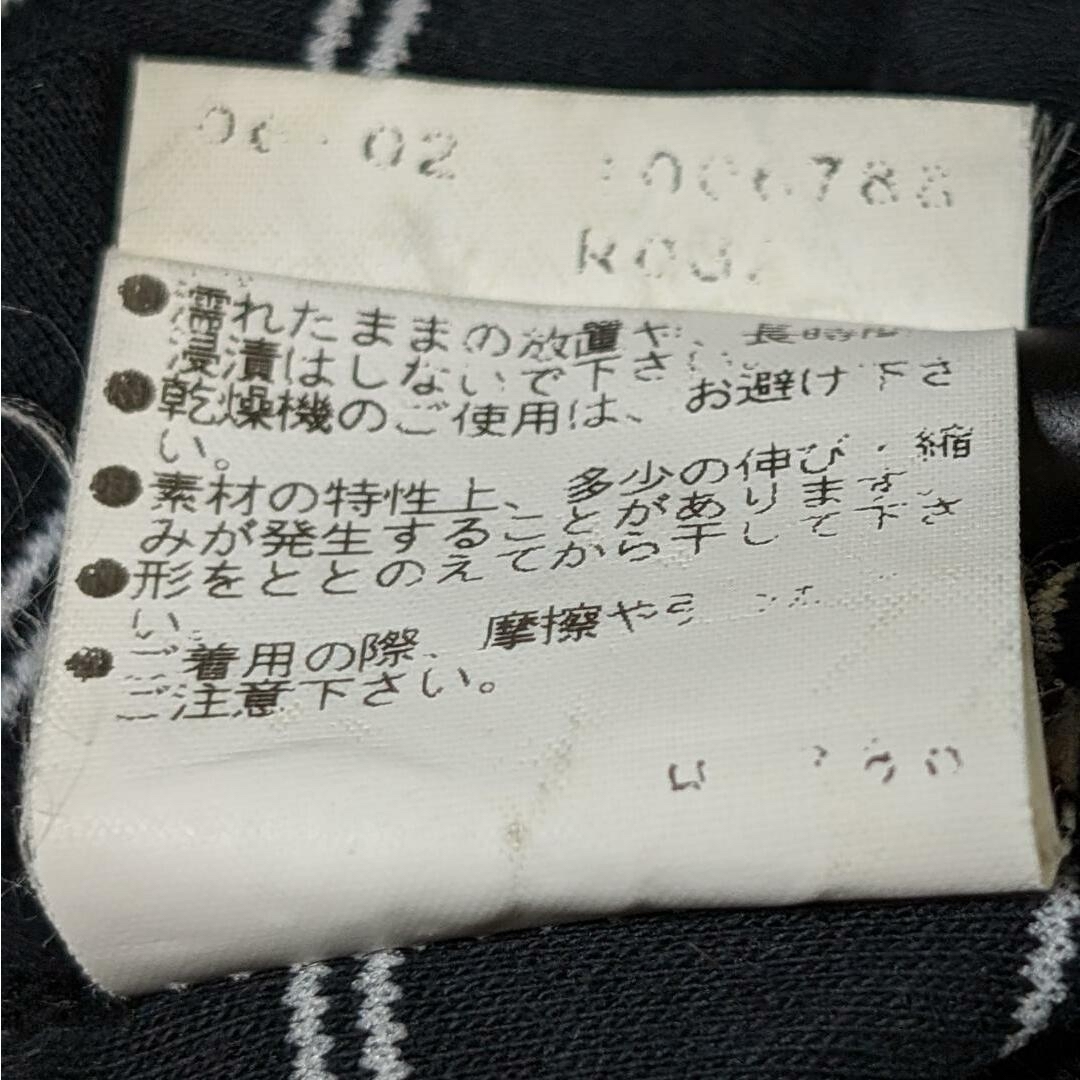 02
●濡れたままの放置や、長時間
浸漬はしないで下さい。
●乾燥機のご使用は、お避け下さ
い。
●素材の特性上、多少の伸び・縮
みが発生することがあります。
●形をととのえてから干して下さ
い。
●ご着用の際、摩擦や
ご注意下さい。